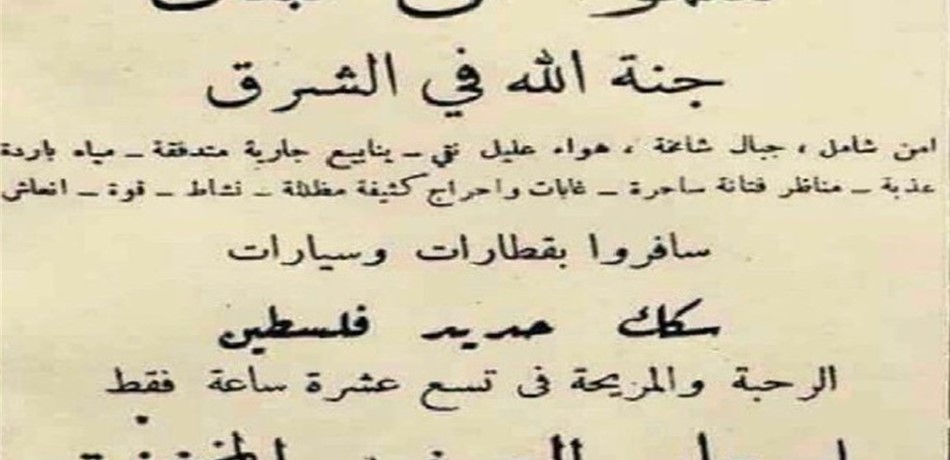 جنة الله في الشرق
امن شامل ، جبال شامخة ، هواء عليل نقي ــ ينابيع جارية متدفقة ــ مياه باردة
عذبة ــ مناظر فتانة ساحرة ــ غابات واحراج كثيفة مظللة ــ نشاط ــ قوة ــ انعاش
سافروا بقطارات وسيارات
سكك حديد فلسطين
الرحبة والمريحة في تسع عشرة ساعة فقط